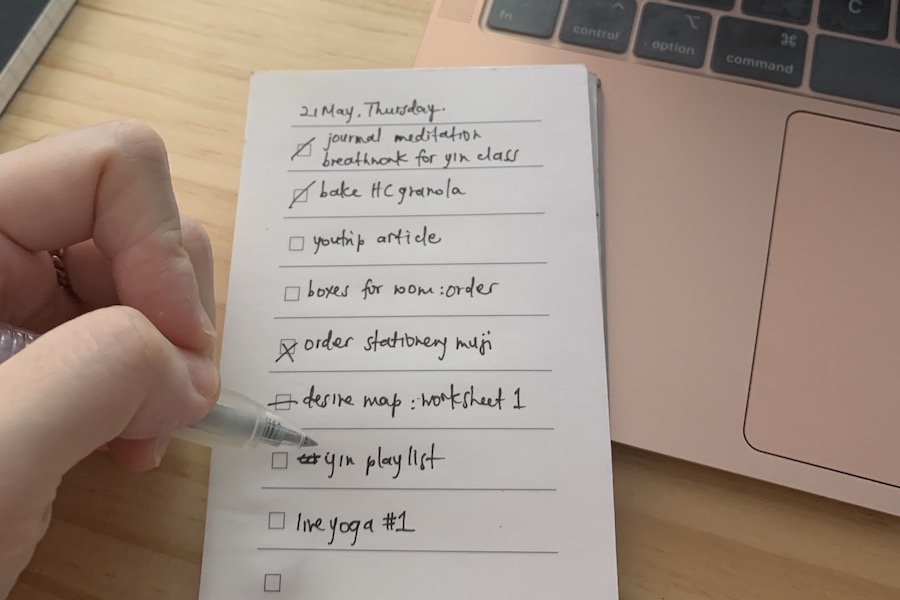 fn
control
option
⌘
command
C
21 May, Thursday.
journal meditation
breathwork for yin class
bake HC granola
youtrip article
boxes for room : order
order stationery muji
desire map : worksheet 1
yin playlist
live yoga #1